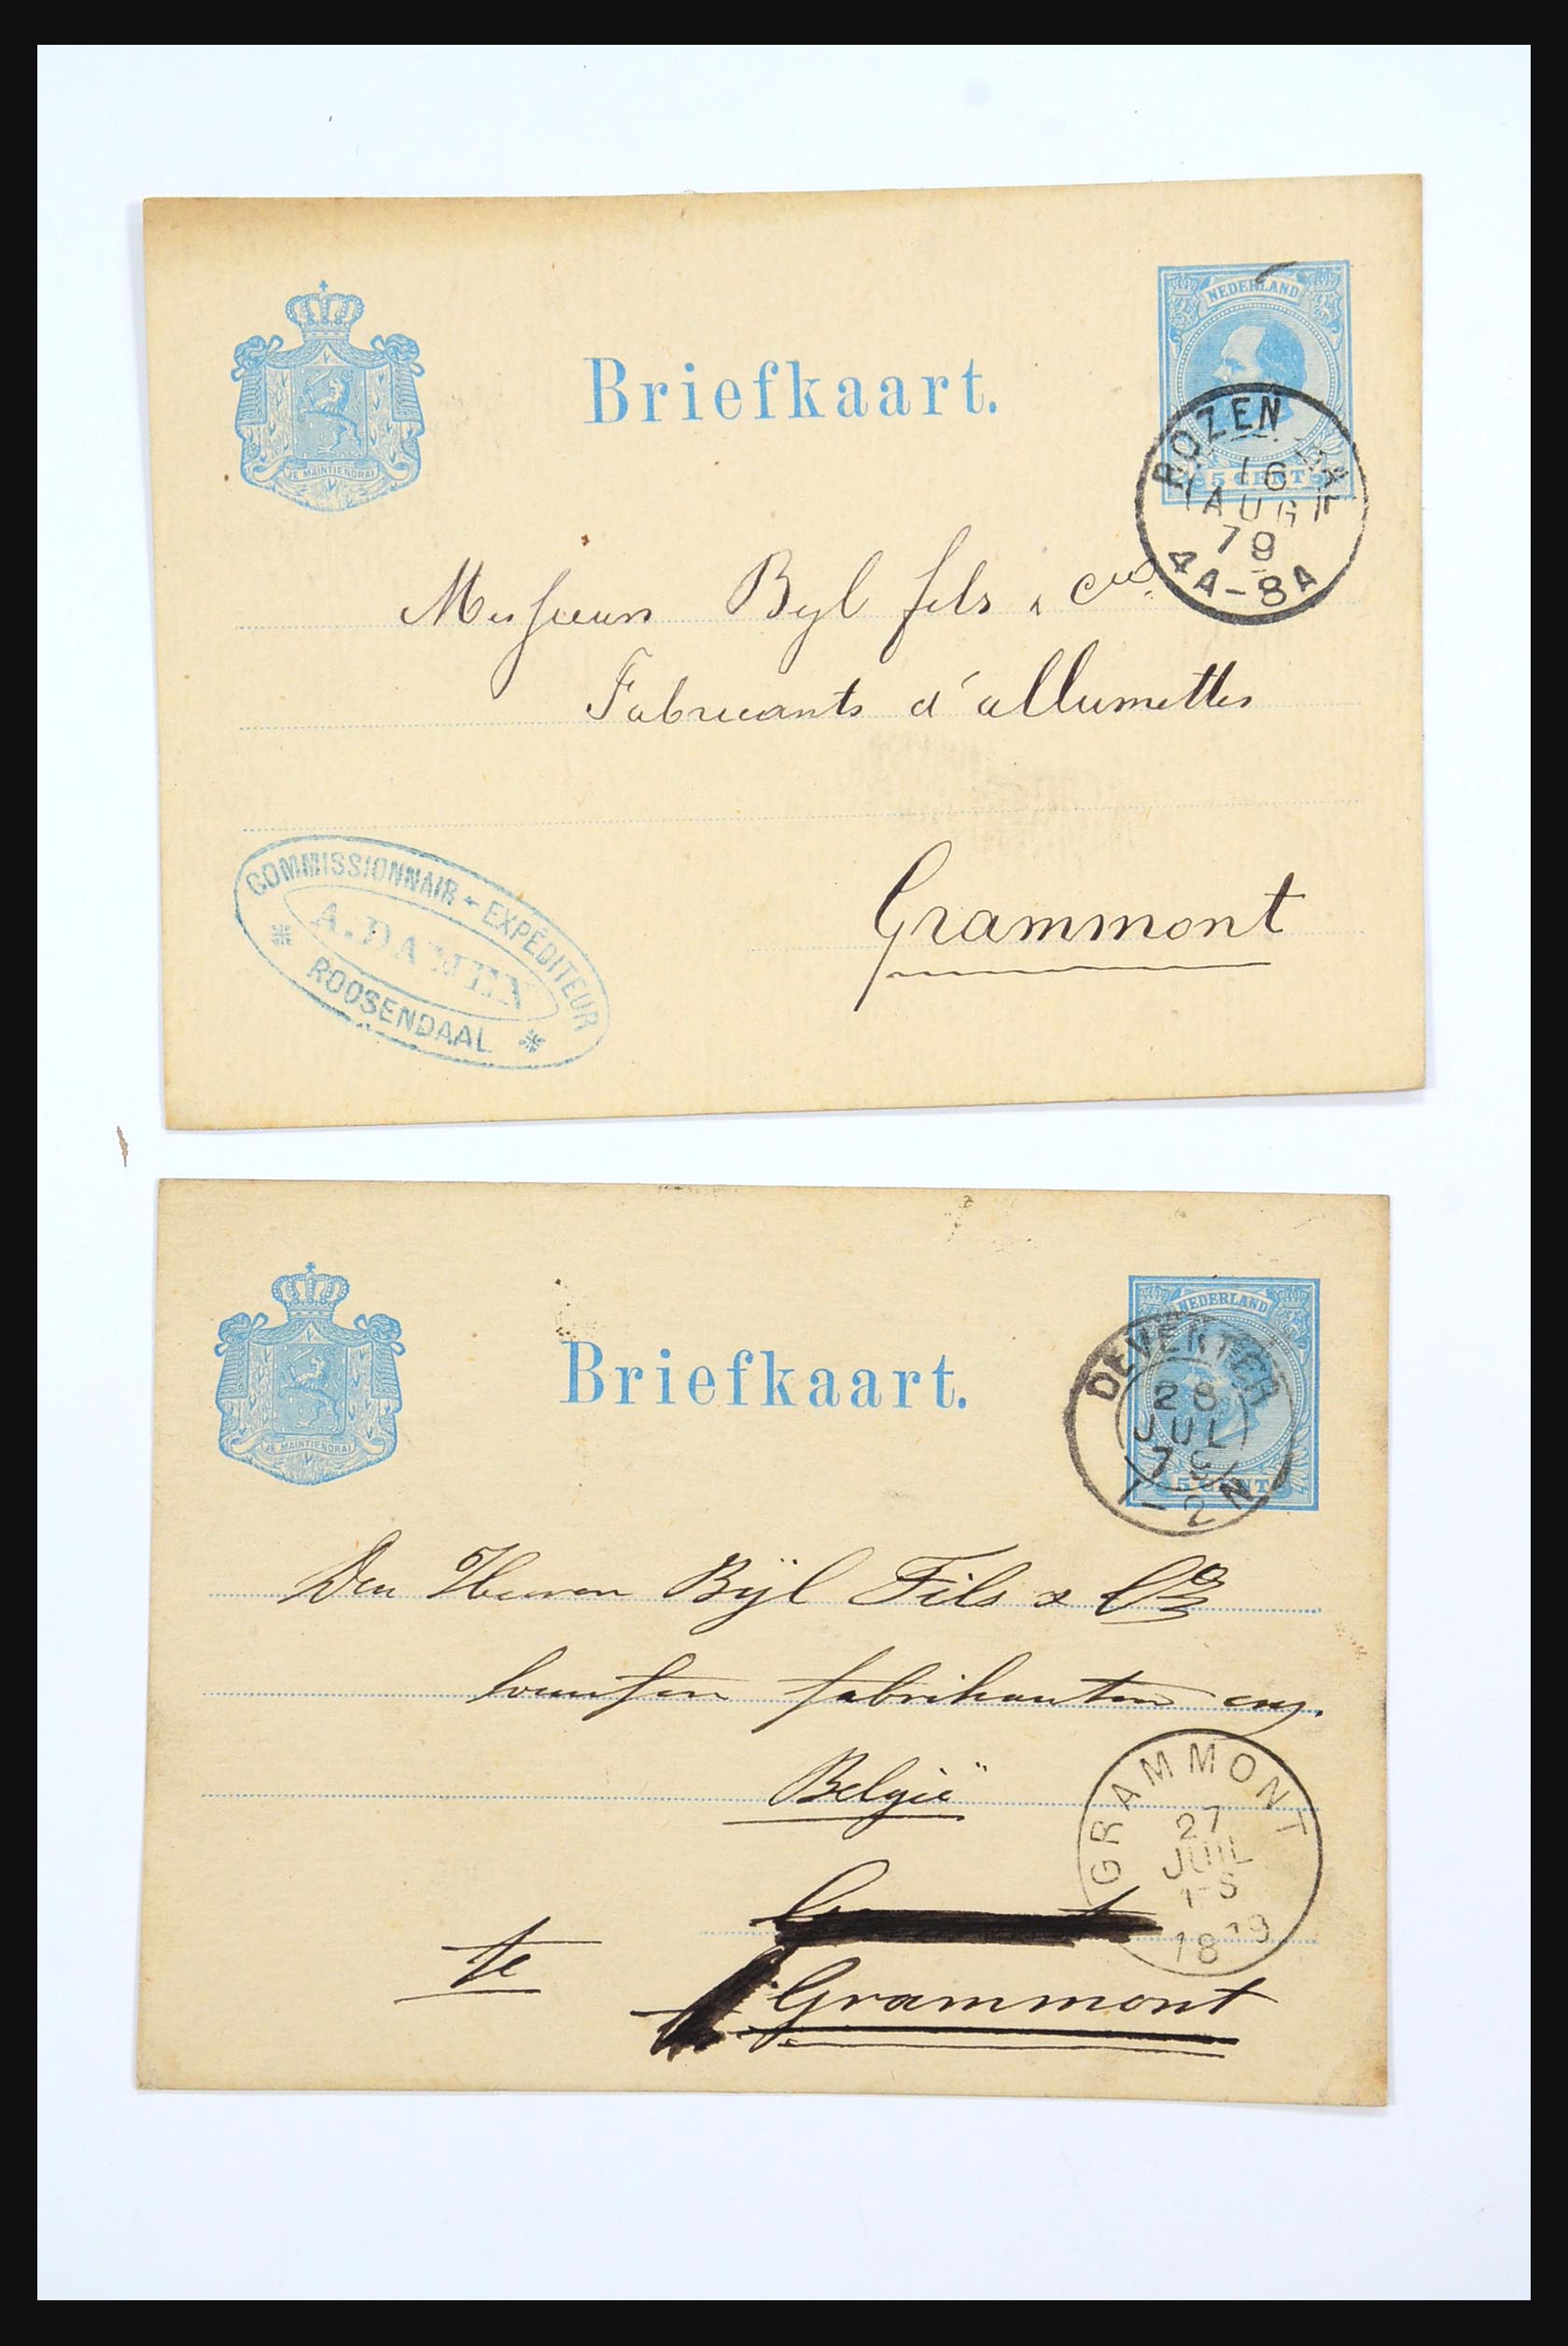 NEDERLAND
JE MAINTIENDRAI
Briefkaart.
5 CENT
ROZEN
16
AUG
79
4A-8A
Messieurs Byl fils & Cie
Fabricants d'allumettes
COMMISSIONNAIR - EXPÉDITEUR
A. DAMEN
ROOSENDAAL
Grammont
NEDERLAND
JE MAINTIENDRAI
Briefkaart.
5 CENT
DEVENTER
26
JUL
79
1-2N
Den Heeren Bÿl Fils &
fabrikanten enz.
België
GRAMMONT
27
JUIL
1-S
1879
te
Grammont